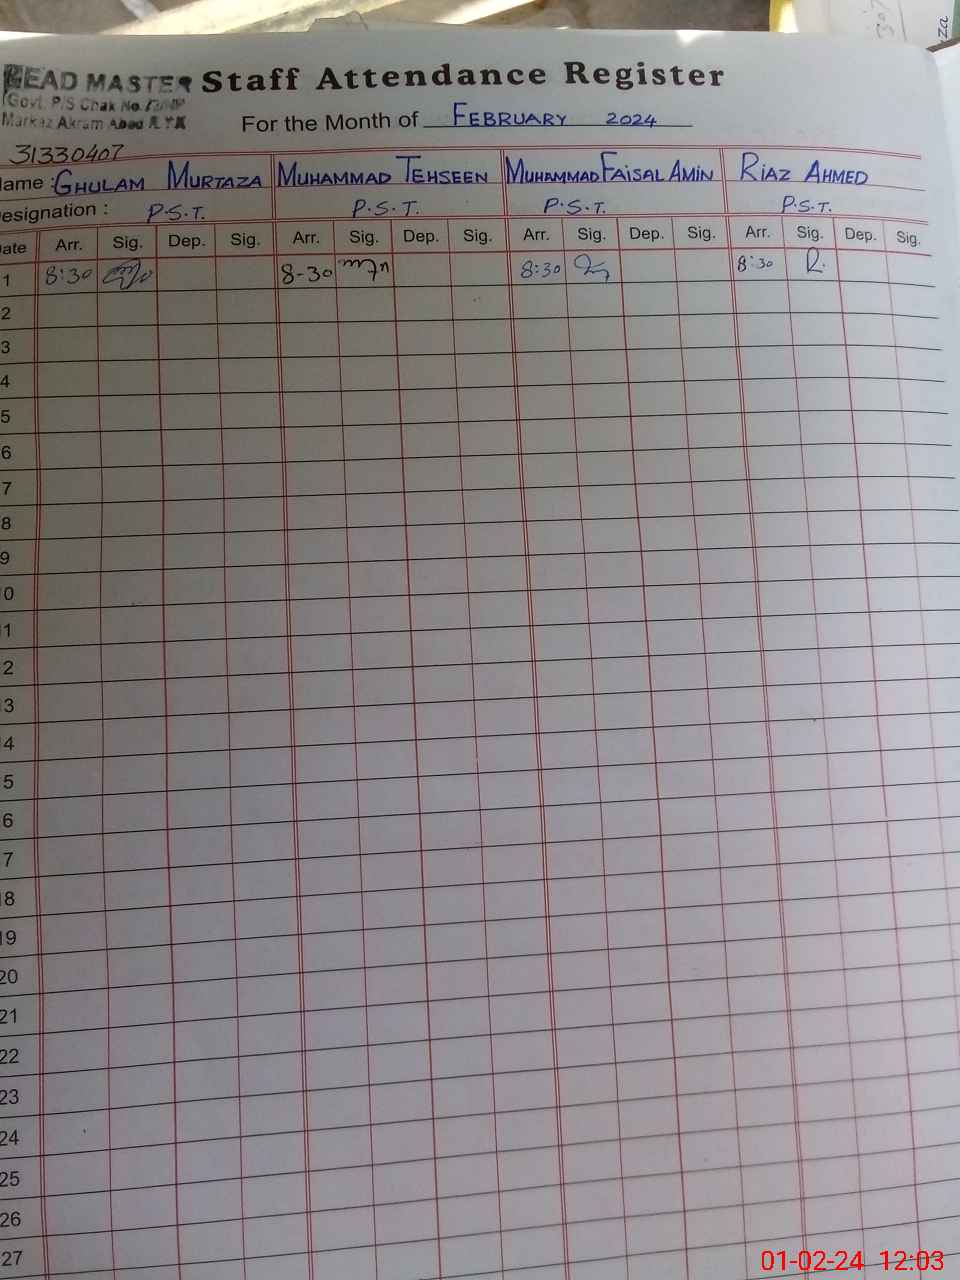 HEAD MASTER Staff Attendance Register
Govt. P/S Chak No.
Markaz Akram Abad R.Y.K
For the Month of FEBRUARY 2024
31330407
Name : GHULAM MURTAZA MUHAMMAD TEHSEEN MUHAMMAD FAISAL AMIN RIAZ AHMED
Designation : P.S.T. P.S.T. P.S.T. P.S.T.
Date Arr. Sig. Dep. Sig. Arr. Sig. Dep. Sig. Arr. Sig. Dep. Sig. Arr. Sig. Dep. Sig.
1 8:30 8-30 8:30 8:30 R.
2
3
4
5
6
7
8
9
0
1
2
3
4
5
6
7
18
19
20
21
22
23
24
25
26
27
01-02-24 12:03